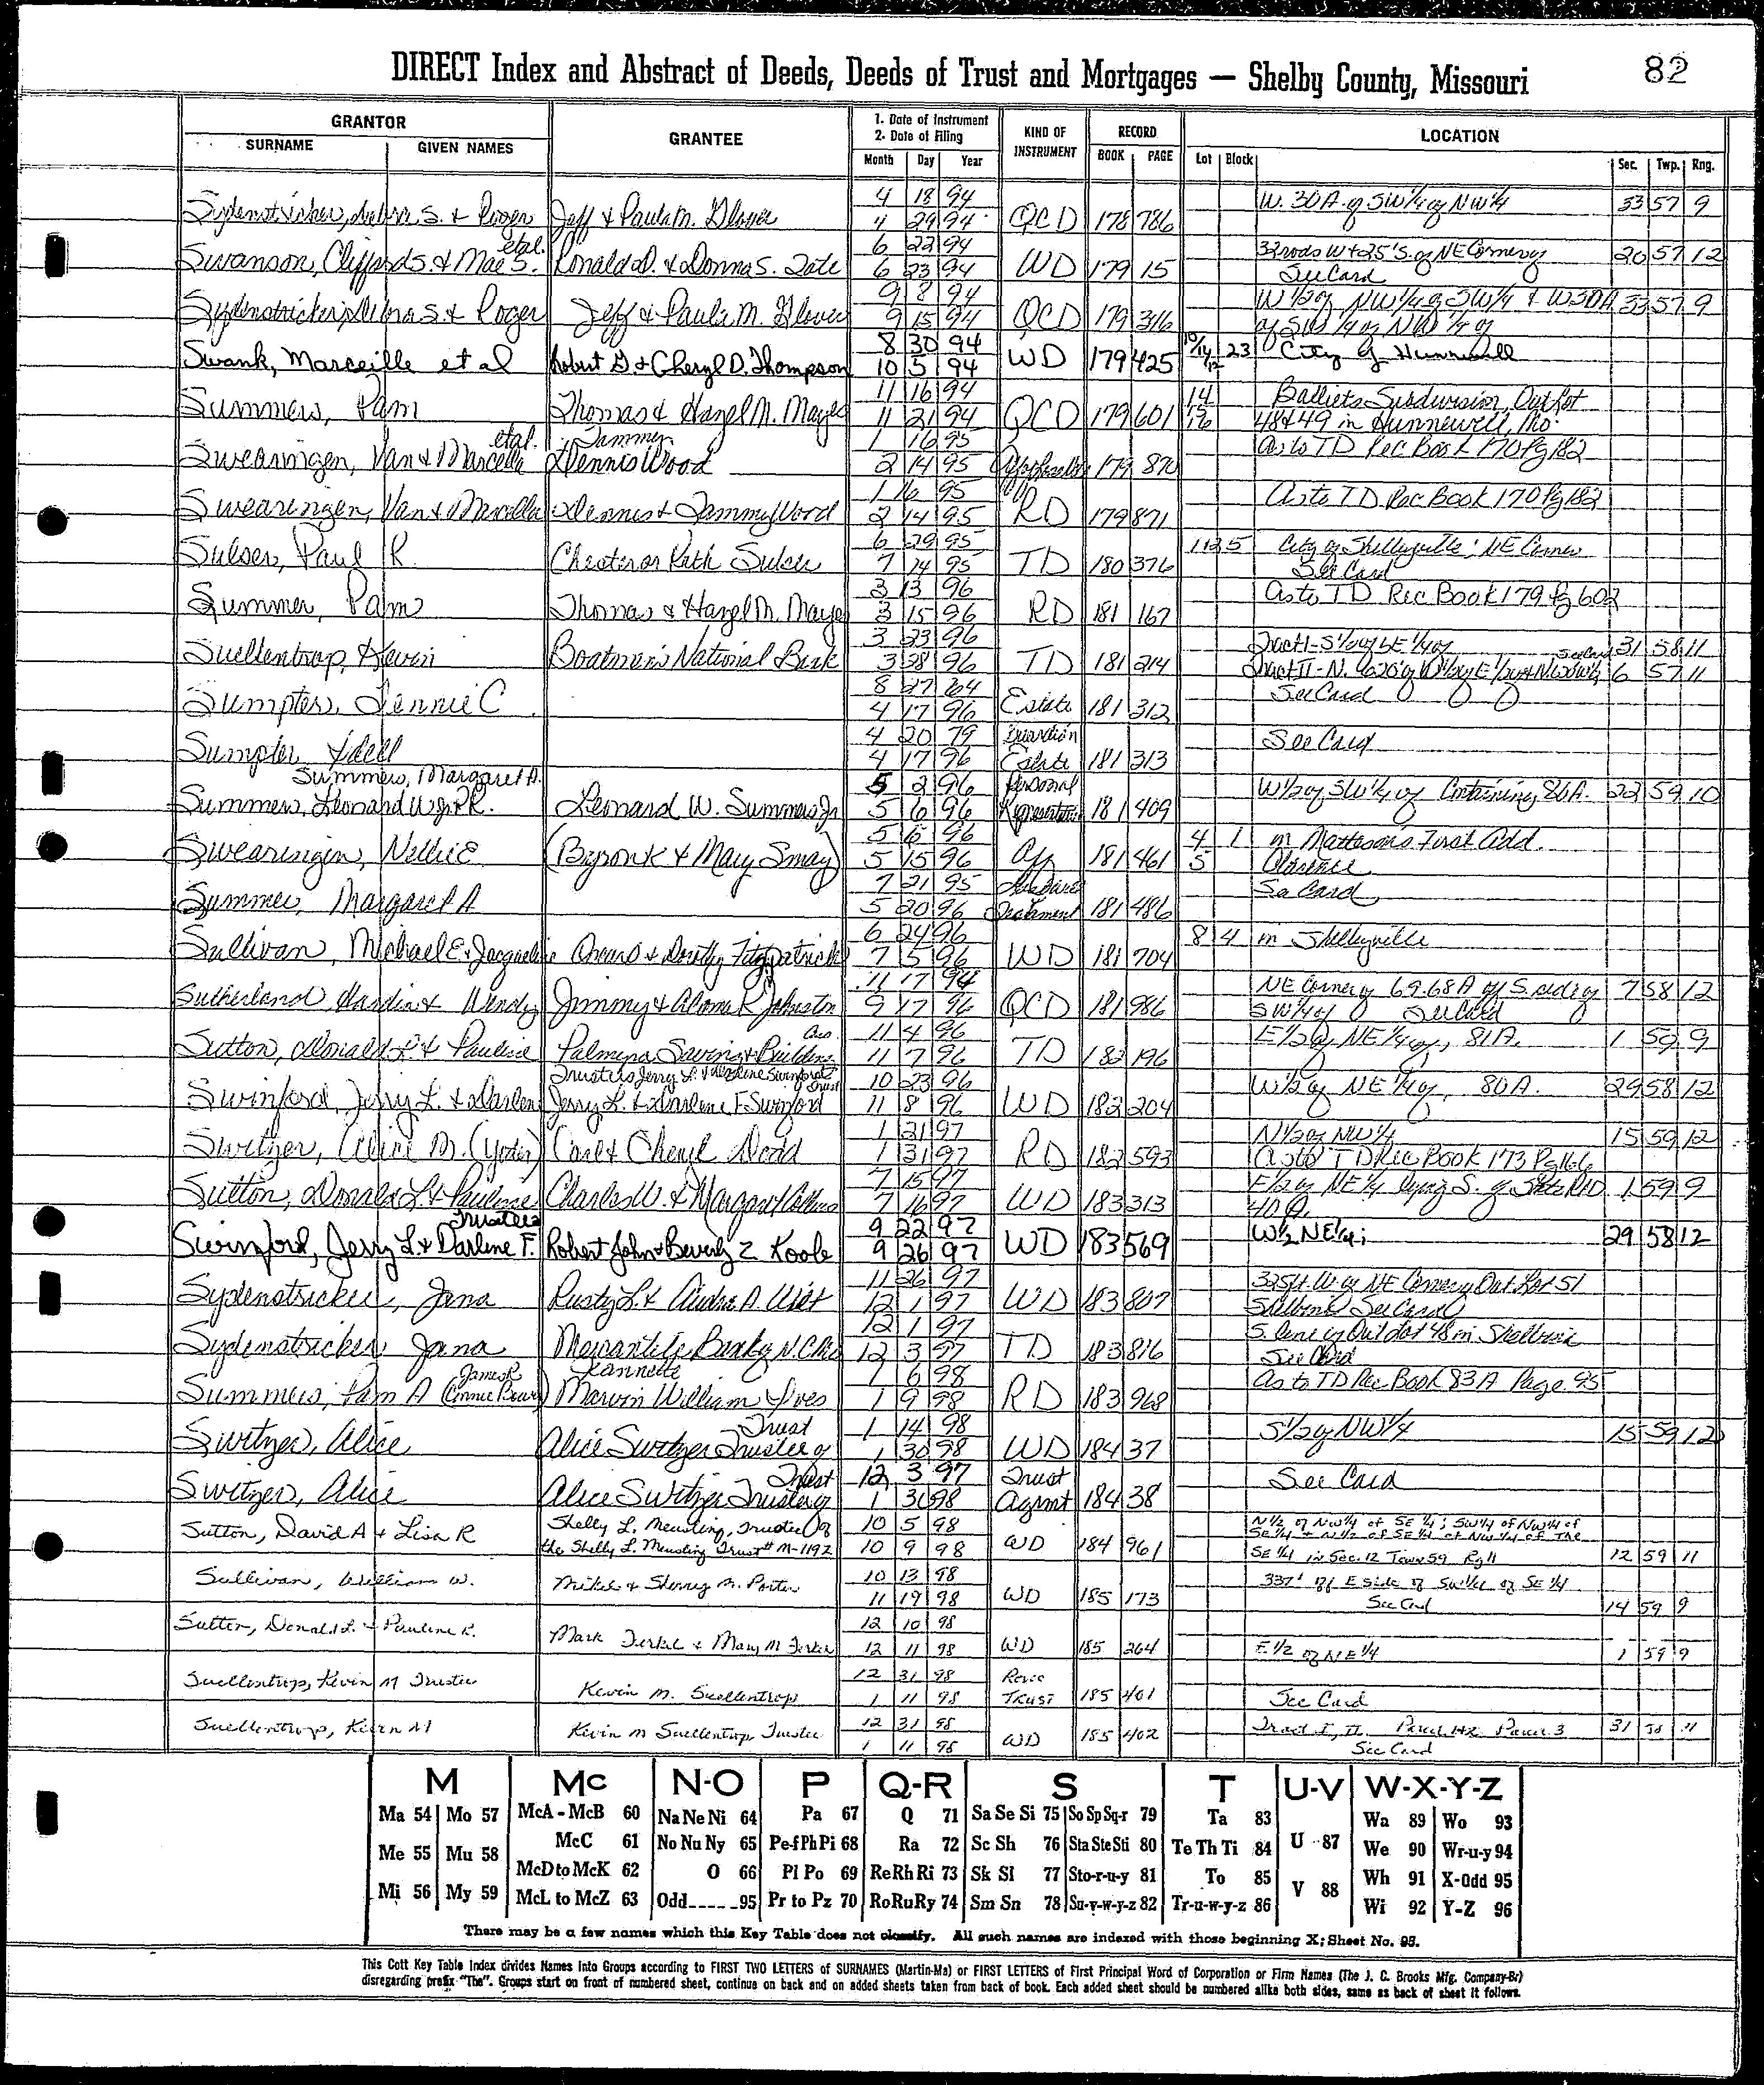 DIRECT Index and Abstract of Deeds, Deeds of Trust and Mortgages — Shelby County, Missouri 82
GRANTOR GRANTEE 1. Date of Instrument 2. Date of Filing KIND OF INSTRUMENT RECORD LOCATION
SURNAME GIVEN NAMES Month Day Year BOOK PAGE Lot Block Sec. Twp. Rng.
4 18 94 W. 30A of SW 1/4 of NW 1/4 33 57 9
S. & Roger Jeff & Paula M. Glover 4 29 94 QCD 178 786
etal. 6 22 94 32 rods W & 25' S. of NE Corner of 20 57 12
Swanson, Clifford S. & Mae S. Ronald D. & Donna S. Tate 6 23 94 WD 179 15 See Card
9 8 94 W 1/2 of NW 1/4 of SW 1/4 & W30A 33 57 9
Sydenstricker, Debra S. & Roger Jeff & Paula M. Glover 9 15 94 QCD 179 316 of SW 1/4 of NW 1/4 of
8 30 94
Swank, Marceille et al Robert D & Cheryl D. Thompson 10 5 94 WD 179 425 23 City of Hunnewell
11 16 94 14 Balliets Subdivision, Out Lot
Summers, Pam Thomas & Hazel M. Mayes 11 21 94 QCD 179 601 15 16 48 & 49 in Hunnewell, Mo.
etal. Tammy 1 16 95 As to TD Rec Book 170 Pg 182
Swearingen, Van & Marcella Dennis Wood 2 14 95 179 870
1 16 95 As to TD Rec Book 170 Pg 182
Swearingen, Van & Marcella Dennis & Tammy Wood 2 14 95 RD 179 871
6 29 95 City of Shelbyville; NE Corner
Sulser, Paul R. Chester or Ruth Sulser 7 14 95 TD 180 376 See Card
3 13 96 As to TD Rec Book 179 Pg 602
Summer, Pam Thomas & Hazel M. Mayes 3 15 96 RD 181 167
3 23 96 Tract I - S 1/2 of SE 1/4 of See Card 31 58 11
Suellentrop, Kevin Boatmen's National Bank 3 28 96 TD 181 214 Tract II - N. 6 57 11
8 27 64 See Card
Sumpter, Lennie C Estate 4 17 96 181 312
4 20 79
Sumpter, Idell 4 17 96 Estate 181 313 See Card
Summers, Margaret A. 5 2 96 Personal W 1/2 of SW 1/4 of Containing 80 A. 22 59 10
Summers, Leonard W Jr P.R. Leonard W. Summers Jr 5 6 96 Representative 181 409
5 6 96 4 1 in Mattesons First Add.
Swearingin, Nellie E (Byron K & Mary Smay) 5 15 96 Aff 181 461 5 Clarence
7 21 95 See Card
Summer, Margaret A 5 20 96 181 486
6 24 96 8 4 in Shelbyville
Sullivan, Michael E & Jacqueline & Dorothy Fitzpatrick 7 5 96 WD 181 704
11 7 94 NE Corner of 69.68 A of S. side of 7 58 12
Sutherland, & Wendy Jimmy & K Johnston 9 17 96 QCD 181 986 SW 1/4 of See Card
Ass. 11 4 96 E 1/2 of NE 1/4 of, 81 A. 1 59 9
Sutton, Donald L & Pauline Palmyra Saving & Building 11 7 96 TD 182 196
Trustees Jerry L. & Darlene Swinford Trust 10 23 96 W 1/2 of NE 1/4 of, 80 A. 29 58 12
Swinford, Jerry L. & Darlene Jerry L. & Darlene F. Swinford 11 8 96 WD 182 204
1 31 97 N 1/2 of NW 1/4 15 59 12
Switzer, Alice M. (Yoder) Carl & Cheryl Dodd 1 31 97 RD 182 593 As to TD Rec Book 173 Pg 166
7 15 97 E 1/2 of NE 1/4 lying S. of State RD 1 59 9
Sutton, Donald L & Pauline Charles W. & Margaret 7 16 97 WD 183 313 40 A.
Trustees 9 22 97 W 1/2 NE 1/4; 29 58 12
Swinford, Jerry L & Darlene F. Robert John & Beverly Z Koole 9 26 97 WD 183 569
11 26 97 325 ft W of NE Corner of Out Lot 51
Sydenstricker, Jana Rusty L. & A Wilt 12 1 97 WD 183 807 Shelbina See Card
12 1 97 S. line of Out Lot 48 in Shelbina
Sydenstricker, Jana Mercantile Bank of N.C. Mo 12 3 97 TD 183 816 See Card
James R Jeannette 1 6 98 As to TD Rec Book 83A Page 95
Summers, Pam A (Connie Marvin William 1 9 98 RD 183 968
Trust 1 14 98 S 1/2 of NW 1/4 15 59 12
Switzer, Alice Alice Switzer Trustee of 1 30 98 WD 184 37
Trust 12 3 97 Trust See Card
Switzer, Alice Alice Switzer Trustee of 1 31 98 Agmt 184 38
Shelly L. Meusting, Trustee of 10 5 98 N 1/2 of NW 1/4 of SE 1/4; SW 1/4 of NW 1/4 of
Sutton, David A & Lisa R the Shelly L. Meusting Trust # M-1192 10 9 98 WD 184 961 SE 1/4 & N 1/2 of SE 1/4 of NW 1/4 of The
SE 1/4 in Sec. 12 Town 59 Rg 11 12 59 11
Sullivan, William W. Mikel & Sherry M. Porter 10 13 98 337' off E side of SW 1/4 of SE 1/4
11 19 98 WD 185 173 See Card 14 59 9
Sutton, Donald L. & Pauline R. Mark Terkel & Mary M Terkel 12 10 98
12 11 98 WD 185 264 E 1/2 of NE 1/4 1 59 9
Suellentrop, Kevin M Trustee 12 31 98
Kevin M. Suellentrop 1 11 98 Trust 185 401 See Card
Suellentrop, Kevin M Kevin M Suellentrop Trustee 12 31 98 Tract I, II Parcel 1+2 Parcel 3 31 58 11
1 11 98 WD 185 402 See Card
M Mc N-O P Q-R S T U-V W-X-Y-Z
Ma 54 Mo 57 McA - McB 60 Na Ne Ni 64 Pa 67 Q 71 Sa Se Si 75 So Sp Sq-r 79 Ta 83 Wa 89 Wo 93
Me 55 Mu 58 McC 61 No Nu Ny 65 Pe-f Ph Pi 68 Ra 72 Sc Sh 76 Sta Ste Sti 80 Te Th Ti 84 U 87 We 90 Wr-u-y 94
McD to McK 62 O 66 Pl Po 69 Re Rh Ri 73 Sk Sl 77 Sto-r-u-y 81 To 85 Wh 91 X-Odd 95
Mi 56 My 59 McL to McZ 63 Odd 95 Pr to Pz 70 Ro Ru Ry 74 Sm Sn 78 Su-v-w-y-z 82 Tr-u-w-y-z 86 V 88 Wi 92 Y-Z 96
There may be a few names which this Key Table does not classify. All such names are indexed with those beginning X; Sheet No. 95.
This Cott Key Table Index divides Names into Groups according to FIRST TWO LETTERS of SURNAMES (Martin-Ma) or FIRST LETTERS of First Principal Word of Corporation or Firm Names (The J. C. Brooks Mfg. Company-Br)
disregarding prefix "The". Groups start on front of numbered sheet, continue on back and on added sheets taken from back of book. Each added sheet should be numbered alike both sides, same as back of sheet it follows.